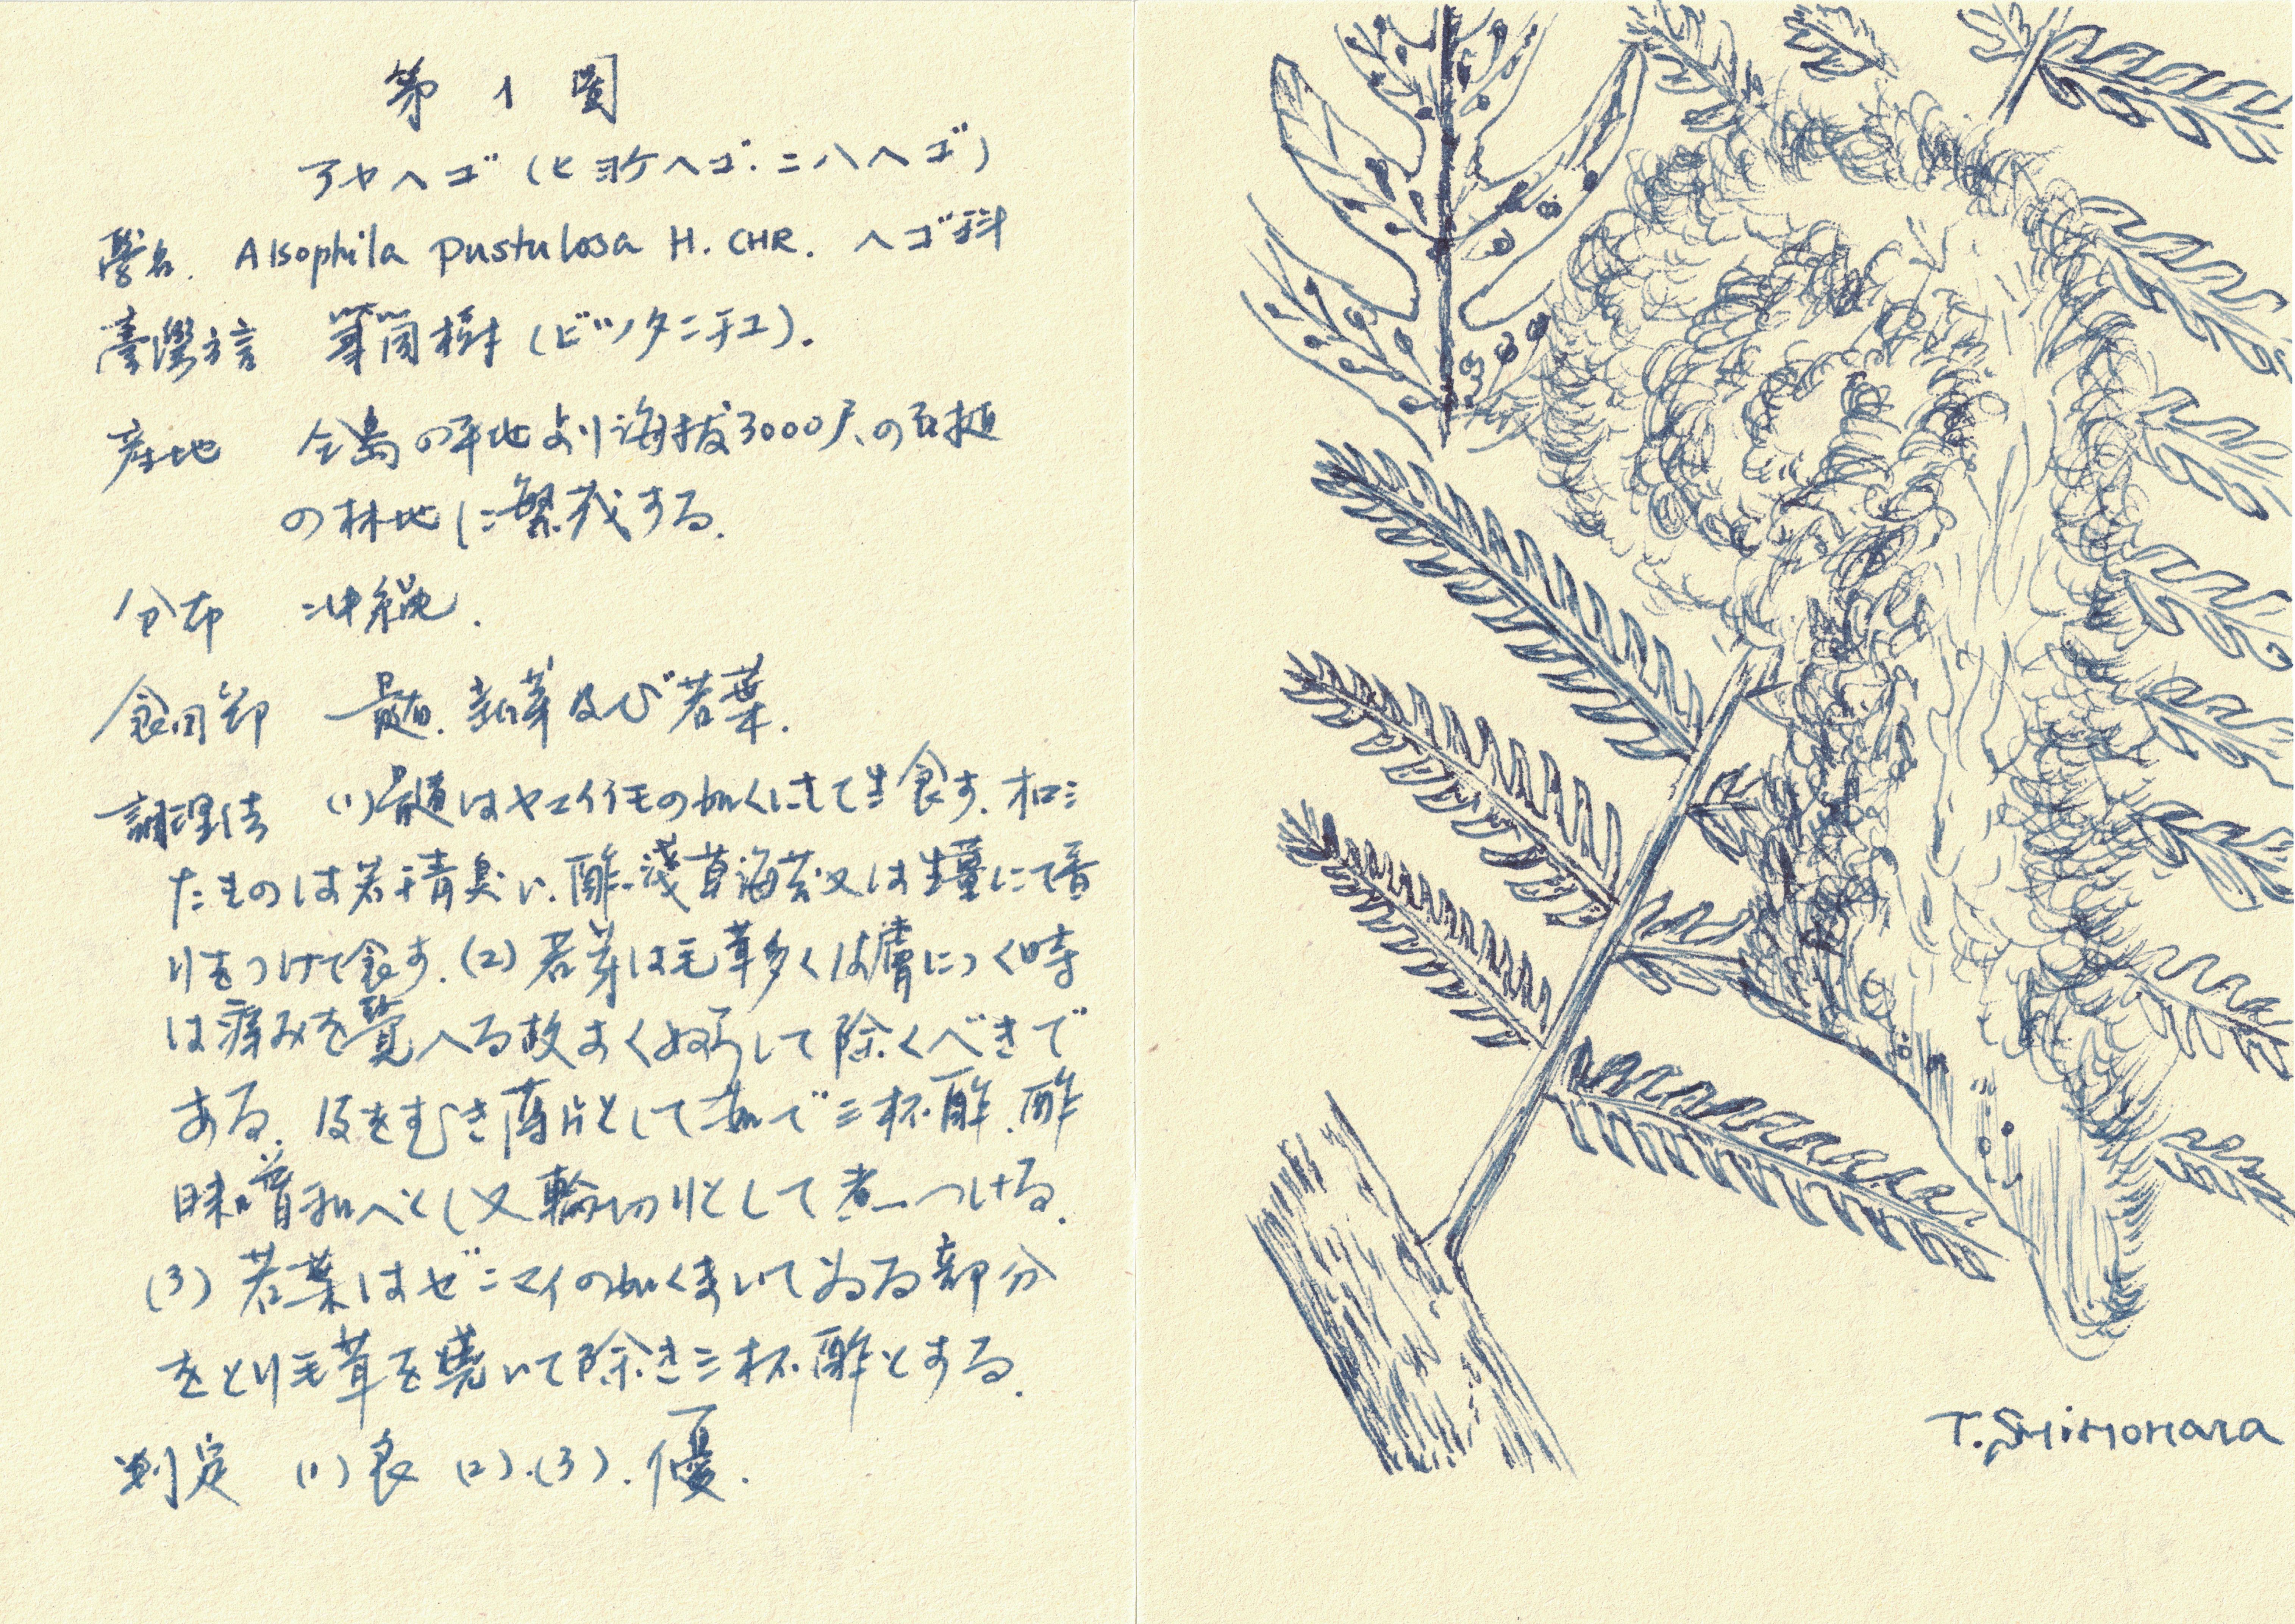 第1圖
アヤヘゴ(ヒヨケヘゴ.ニハヘゴ)
學名. Alsophila pustulosa H. CHR. ヘゴ科
臺灣方言 筆筒樹(ビッタンチュ).
産地 全島の平地より海拔3000尺の
の林地に繁茂する.
分布 沖繩.
食用部 髓.新芽及び若葉.
調理法 (1)髓はヤマイモの如くにして生食す.
たものは若干青臭い.酢.淺草海苔又は生薑にて香
りをつけて食す.(2)若芽は毛茸多く皮膚につく時
は痛みを覺へる故よく して除くべきで
ある.皮をむき薄片として茹で三杯酢.酢
味噌和へとし又輪切りとして煮つける.
(3)若葉はゼンマイの如くまいてゐる部分
をとり毛茸を燒いて除き三杯酢とする.
判定 (1)良 (2).(3).優.
T. Shimohara